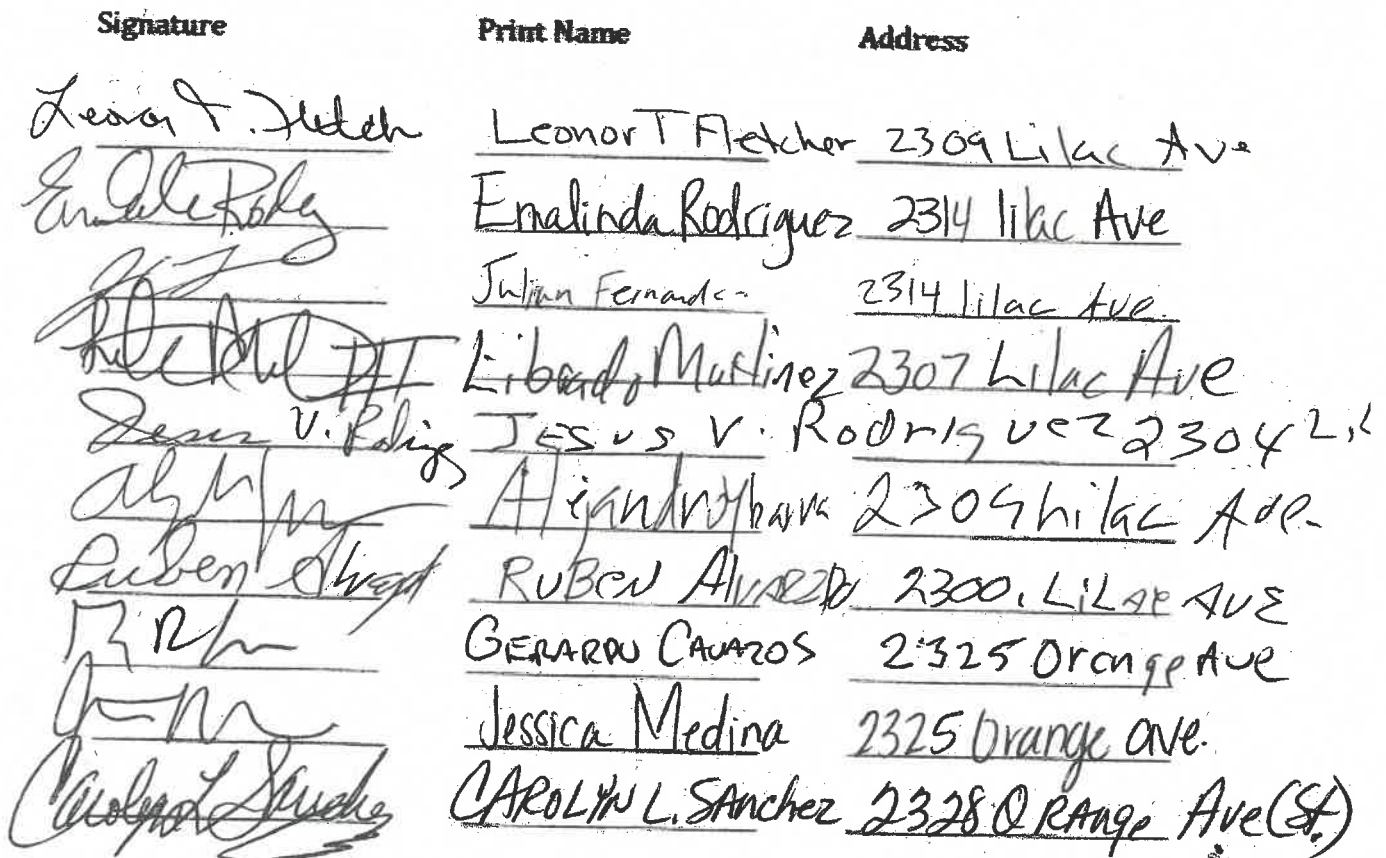 Signature Print Name Address
Leonor T. Fletch Leonor T Fletcher 2309 Lilac Ave
Emalinda Rodriguez 2314 lilac Ave
Julian 2314 lilac Ave.
III Librado Martinez 2307 Lilac Ave
Jesus V. Jesus V. Rodriguez 2304 Lil
2309 Lilac Ave.
Ruben Ruben Alvarado 2300. Lilac AVE
GERARDO CAVAZOS 2325 Orange Ave
Jessica Medina 2325 Orange ave.
Carolyn L Sanchez CAROLYN L. SAnchez 2328 ORAnge Ave (St.)